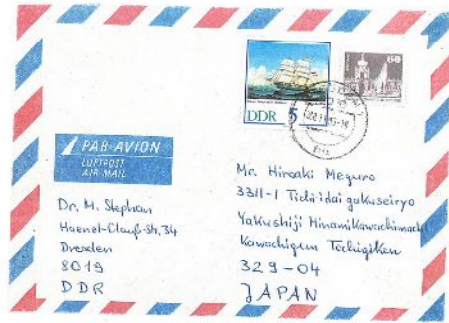 DDR 5
60
PAR AVION
LUFTPOST
AIR MAIL
Dr. M. Stephan
Haenel-Clauß-Str. 34
Dresden
8019
DDR
Mr. Hiroaki Meguro
3311-1 Tichiidaigakuseiryo
Yakushiji Minamikawachimachi
Kawachigun Tochigiken
329-04
JAPAN